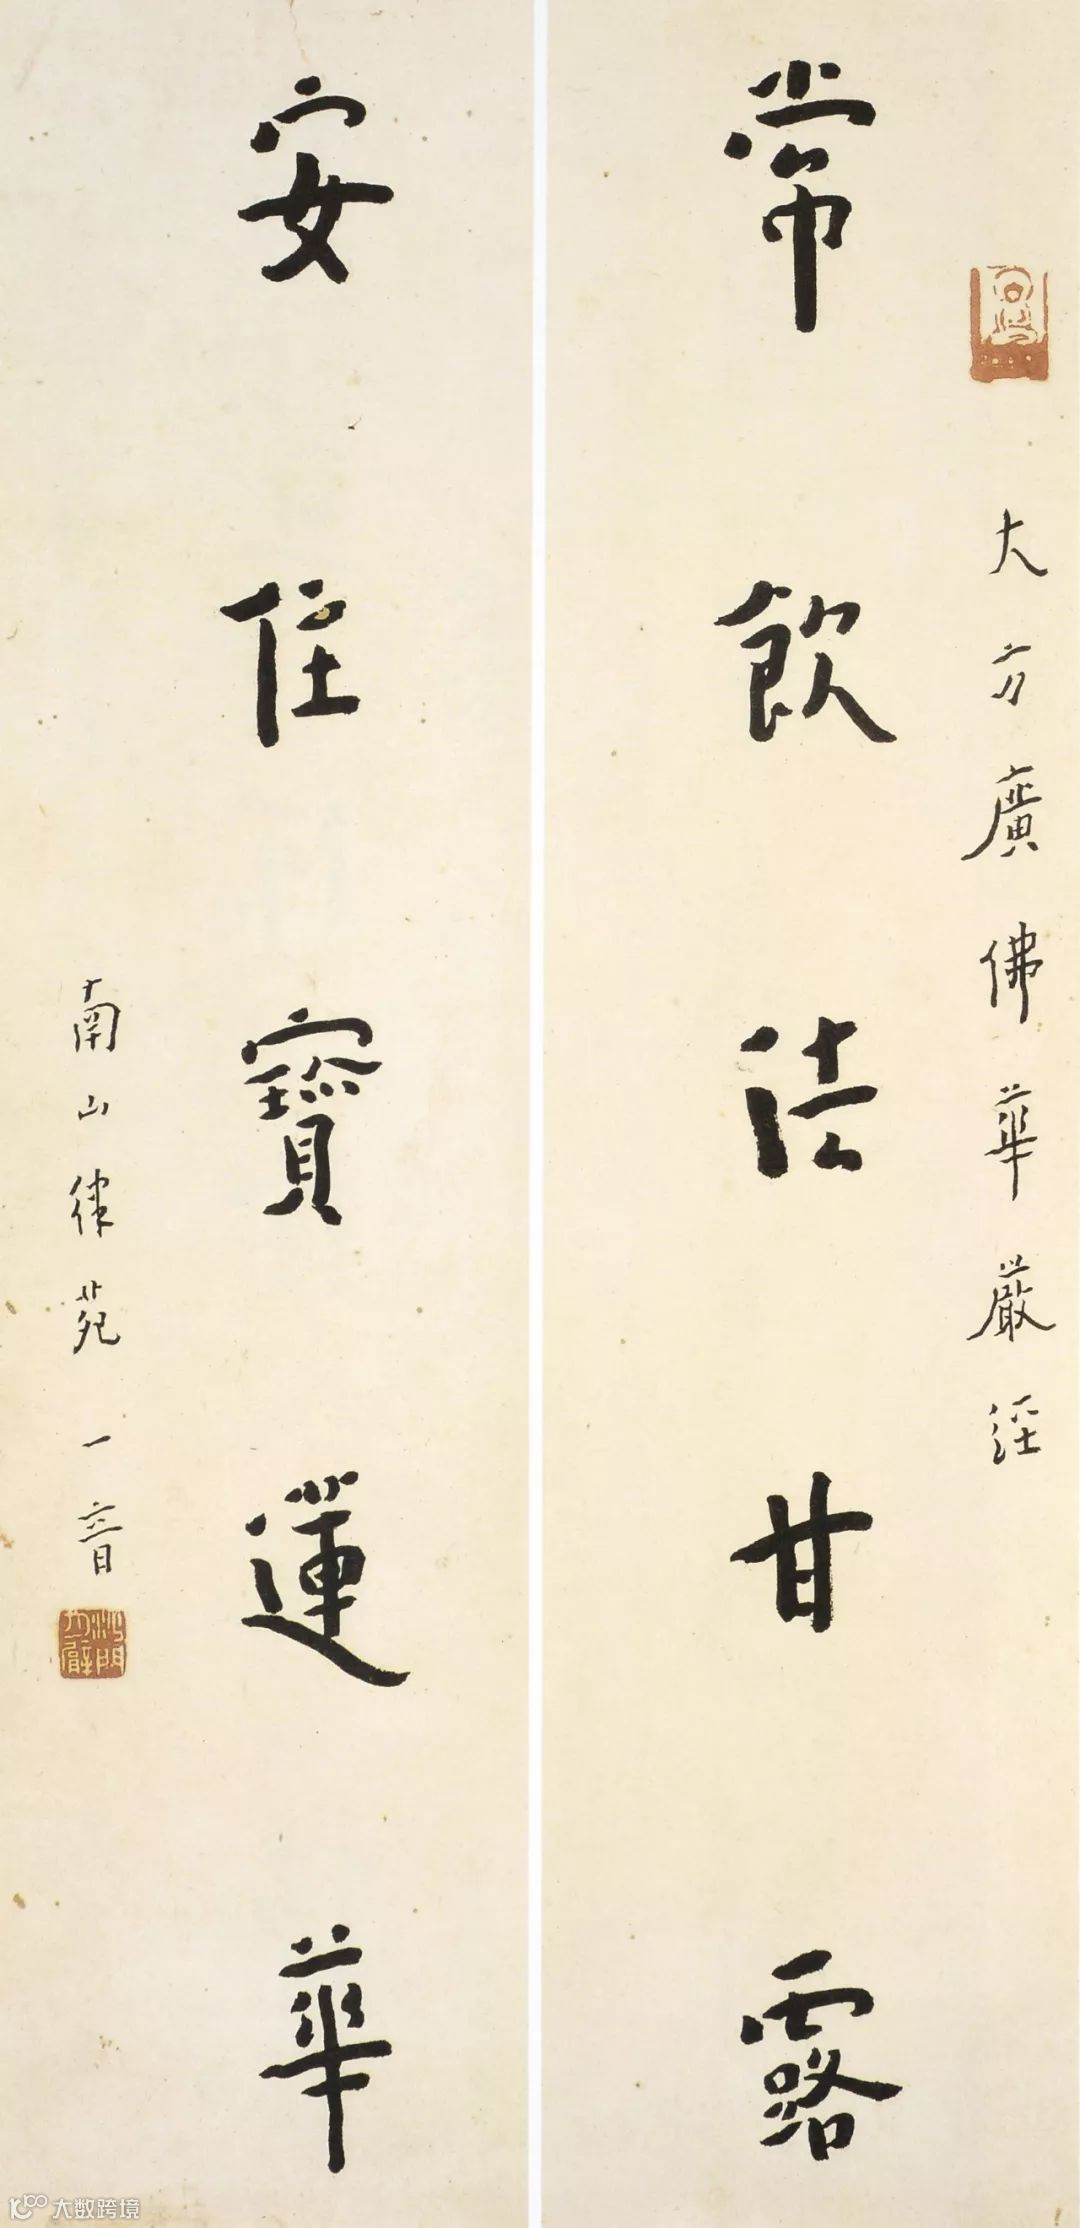 大方廣佛華嚴經
常飲法甘露
安住寶蓮華
南山律苑 一音
沙門月臂
大数跨境